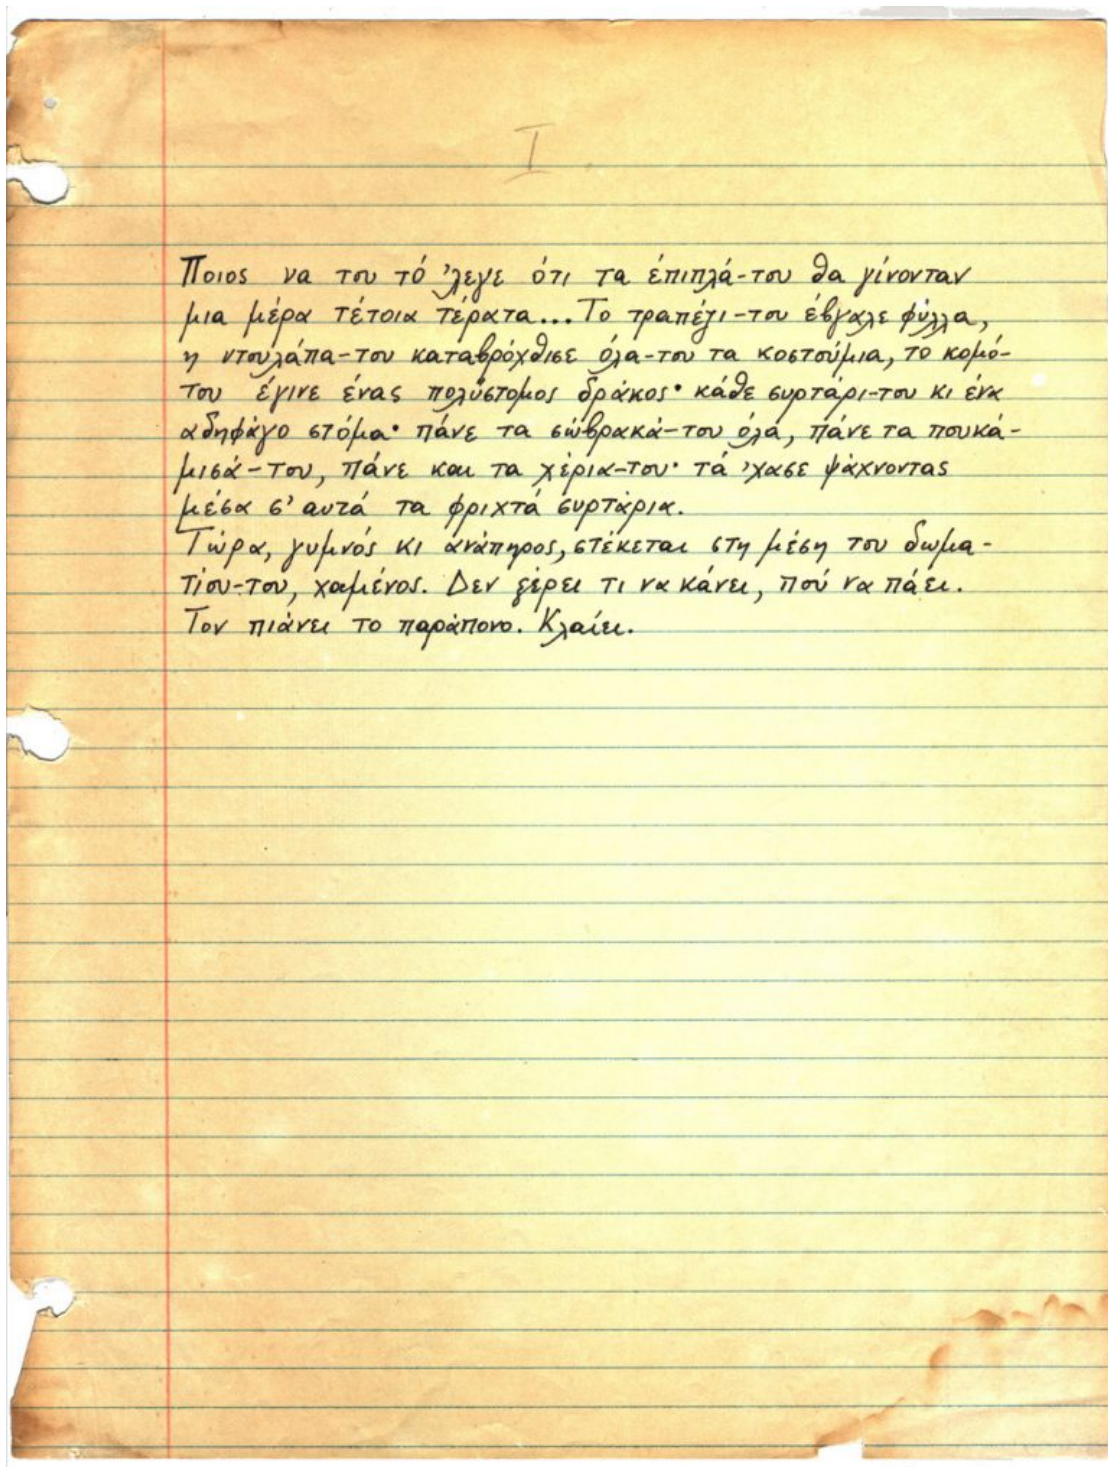 I
Ποιος να του τό 'λεγε ότι τα έπιπλά-του θα γίνονταν
μια μέρα τέτοια τέρατα... Το τραπέζι-του έβγαλε φύλλα,
η ντουλάπα-του καταβρόχθισε όλα-του τα κοστούμια, το κομό-
του έγινε ένας πολύστομος δράκος· κάθε συρτάρι-του κι ένα
αδηφάγο στόμα· πάνε τα σώβρακά-του όλά, πάνε τα πουκά-
μισά-του, πάνε και τα χέρια-του· τά 'χασε ψάχνοντας
μέσα σ' αυτά τα φριχτά συρτάρια.
Τώρα, γυμνός κι ανάπηρος, στέκεται στη μέση του δωμα-
τίου-του, χαμένος. Δεν ξέρει τι να κάνει, πού να πάει.
Τον πιάνει το παράπονο. Κλαίει.